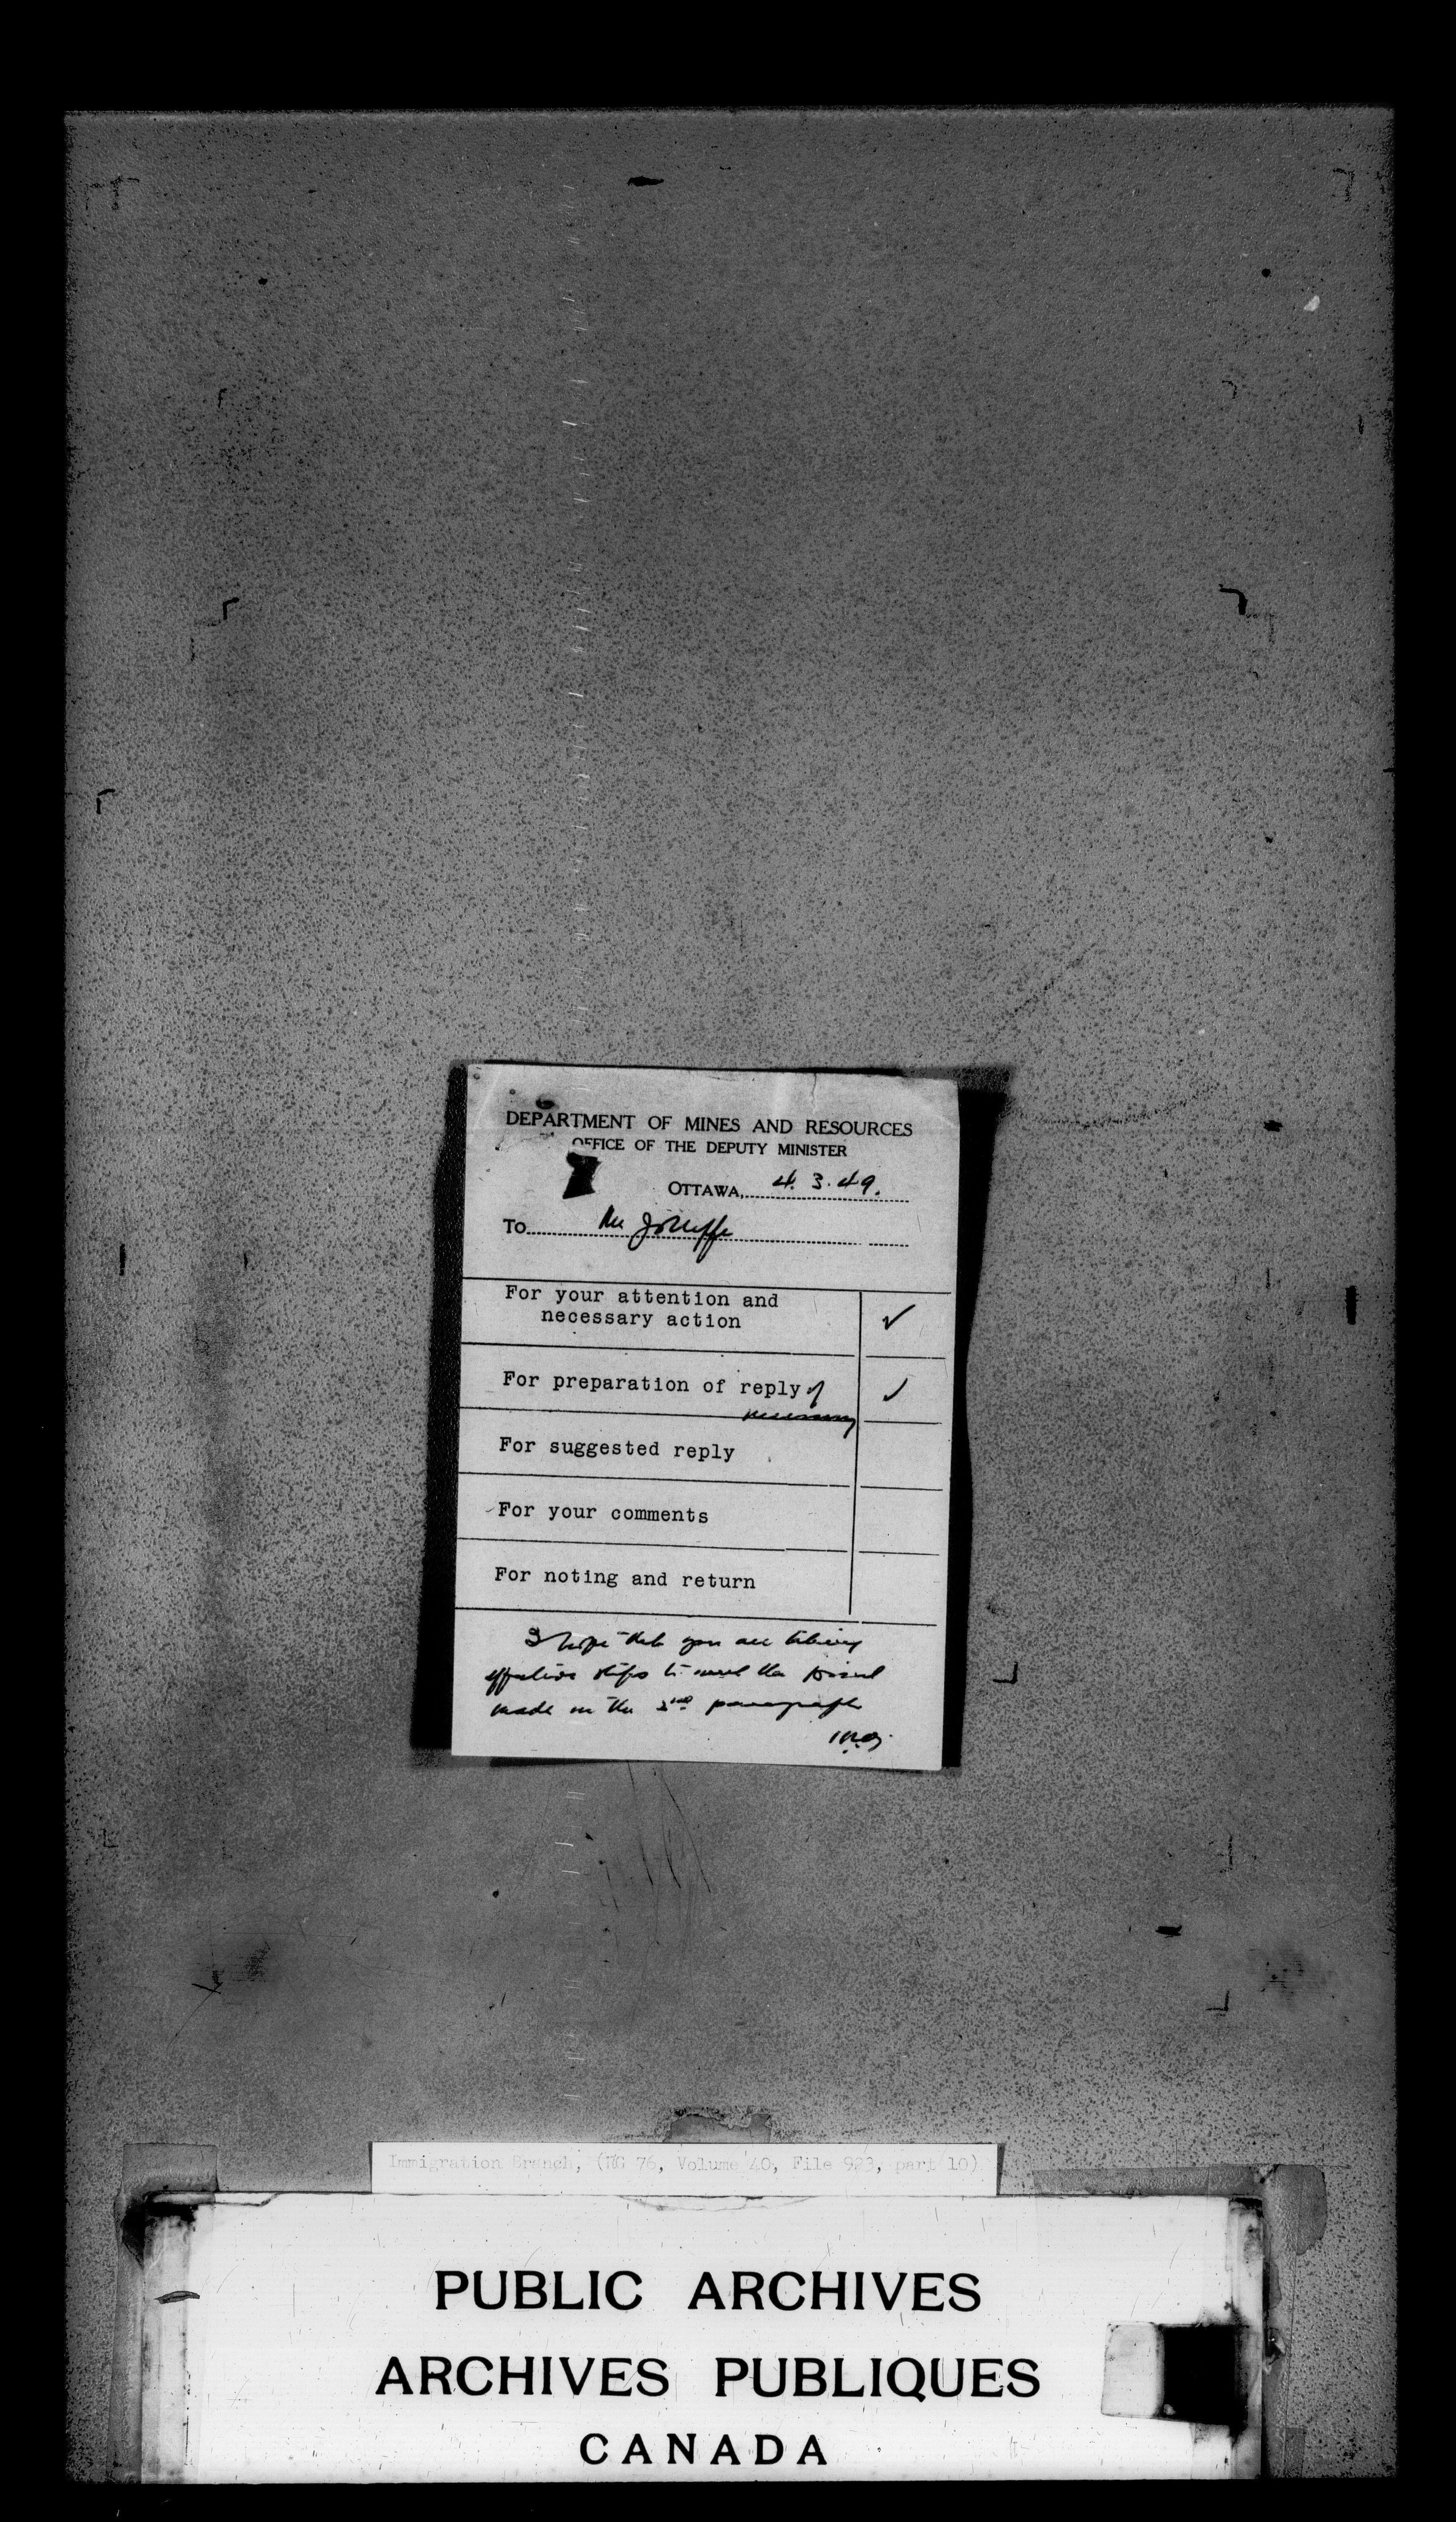 DEPARTMENT OF MINES AND RESOURCES
OFFICE OF THE DEPUTY MINISTER
OTTAWA, 4. 3. 49.
To Mr Jolliffe
For your attention and
necessary action ✓
For preparation of reply if ✓
necessary
For suggested reply
For your comments
For noting and return
I hope that you are taking
effective steps to meet the point
made in the 2nd paragraph
Immigration Branch, (RG 76, Volume 40, File 923, part 10)
PUBLIC ARCHIVES
ARCHIVES PUBLIQUES
CANADA